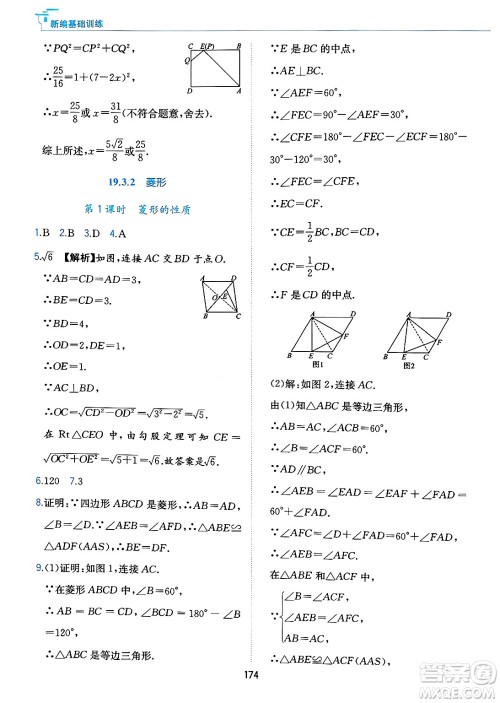 新编基础训练
∵PQ²=CQ²+CP²,
∴25/16=1+(7-2x)²,
∴x=25/8或x=31/8(不符合题意,舍去).
综上所述,x=5√2/8或25/8.
19.3.2 菱形
第1课时 菱形的性质
1.B 2.B 3.D 4.A
5.√6 【解析】如图,连接AC交BD于点O.
∵AB=CD=AD=3,
∴BE=CD=3.
∵BD=4,
∴OD=2,DE=1,
∴OE=1.
∵AC⊥BD,
∴OC=√CD²-OD²=√5.
在Rt△CEO中,由勾股定理可知CE=
√OC²+OE²=√5+1=√6.故答案是√6.
6.120 7.3
8.证明:∵四边形ABCD是菱形,∴AB=AD,
∠B=∠D.又∵∠AEB=∠AFD,∴△ABE≌
△ADF(AAS).
9.(1)证明:如图1,连接AC.
∵在菱形ABCD中,∠B=60°,
∴AB=BC=CD,∠BCD=180°-∠B=
120°,
∴△ABC是等边三角形.
∵E是BC的中点,
∴AE⊥BC.
∵∠AEF=60°,
∴∠FEC=90°-∠AEF=30°,
∴∠CFE=180°-∠FEC-∠BCD=180°-
30°-120°=30°,
∴∠FEC=∠CFE,
∴CE=CF.
∵CE=1/2BC,
∴CF=1/2CD,
∴F是CD的中点.
A D F B E C 图1
A D F B E C 图2
(2)解:如图2,连接AC.
由(1)知△ABC是等边三角形,
∴AB=AC,∠ACB=60°,
∴∠B=∠ACF=60°.
∵AD∥BC,
∴∠AEB=∠EAD=∠EAF+∠FAD=
60°+∠FAD,
∠AFC=∠D+∠FAD=60°+∠FAD,
∴∠AEB=∠AFC.
在△ABE和△ACF中,
∵ ∠B=∠ACF,
∠AEB=∠AFC,
AB=AC,
∴△ABE≌△ACF(AAS),
174